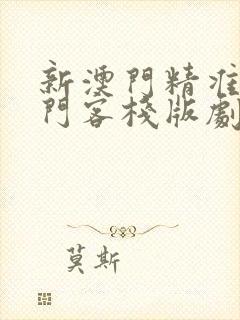 新澳門精准
門客棧版劇
莫斯